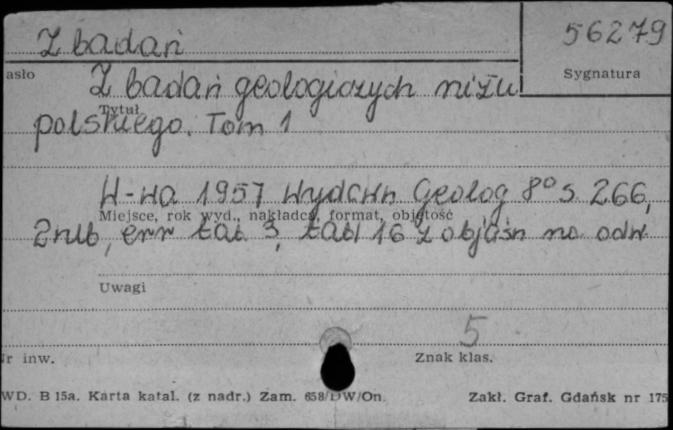 Z badań
56279
asło
Sygnatura
Z badań geologicznych niżu
Tytuł
polskiego. Tom 1
W-wa 1957 Wydawn Geolog 8° s. 266,
Miejsce, rok wyd., nakładca, format, objętość
2nlb, err tab 3, tabl 16 z objaśn na odw.
Uwagi
5
r inw.
Znak klas.
WD. B 15a. Karta katal. (z nadr.) Zam. 658/DW/On.
Zakł. Graf. Gdańsk nr 175